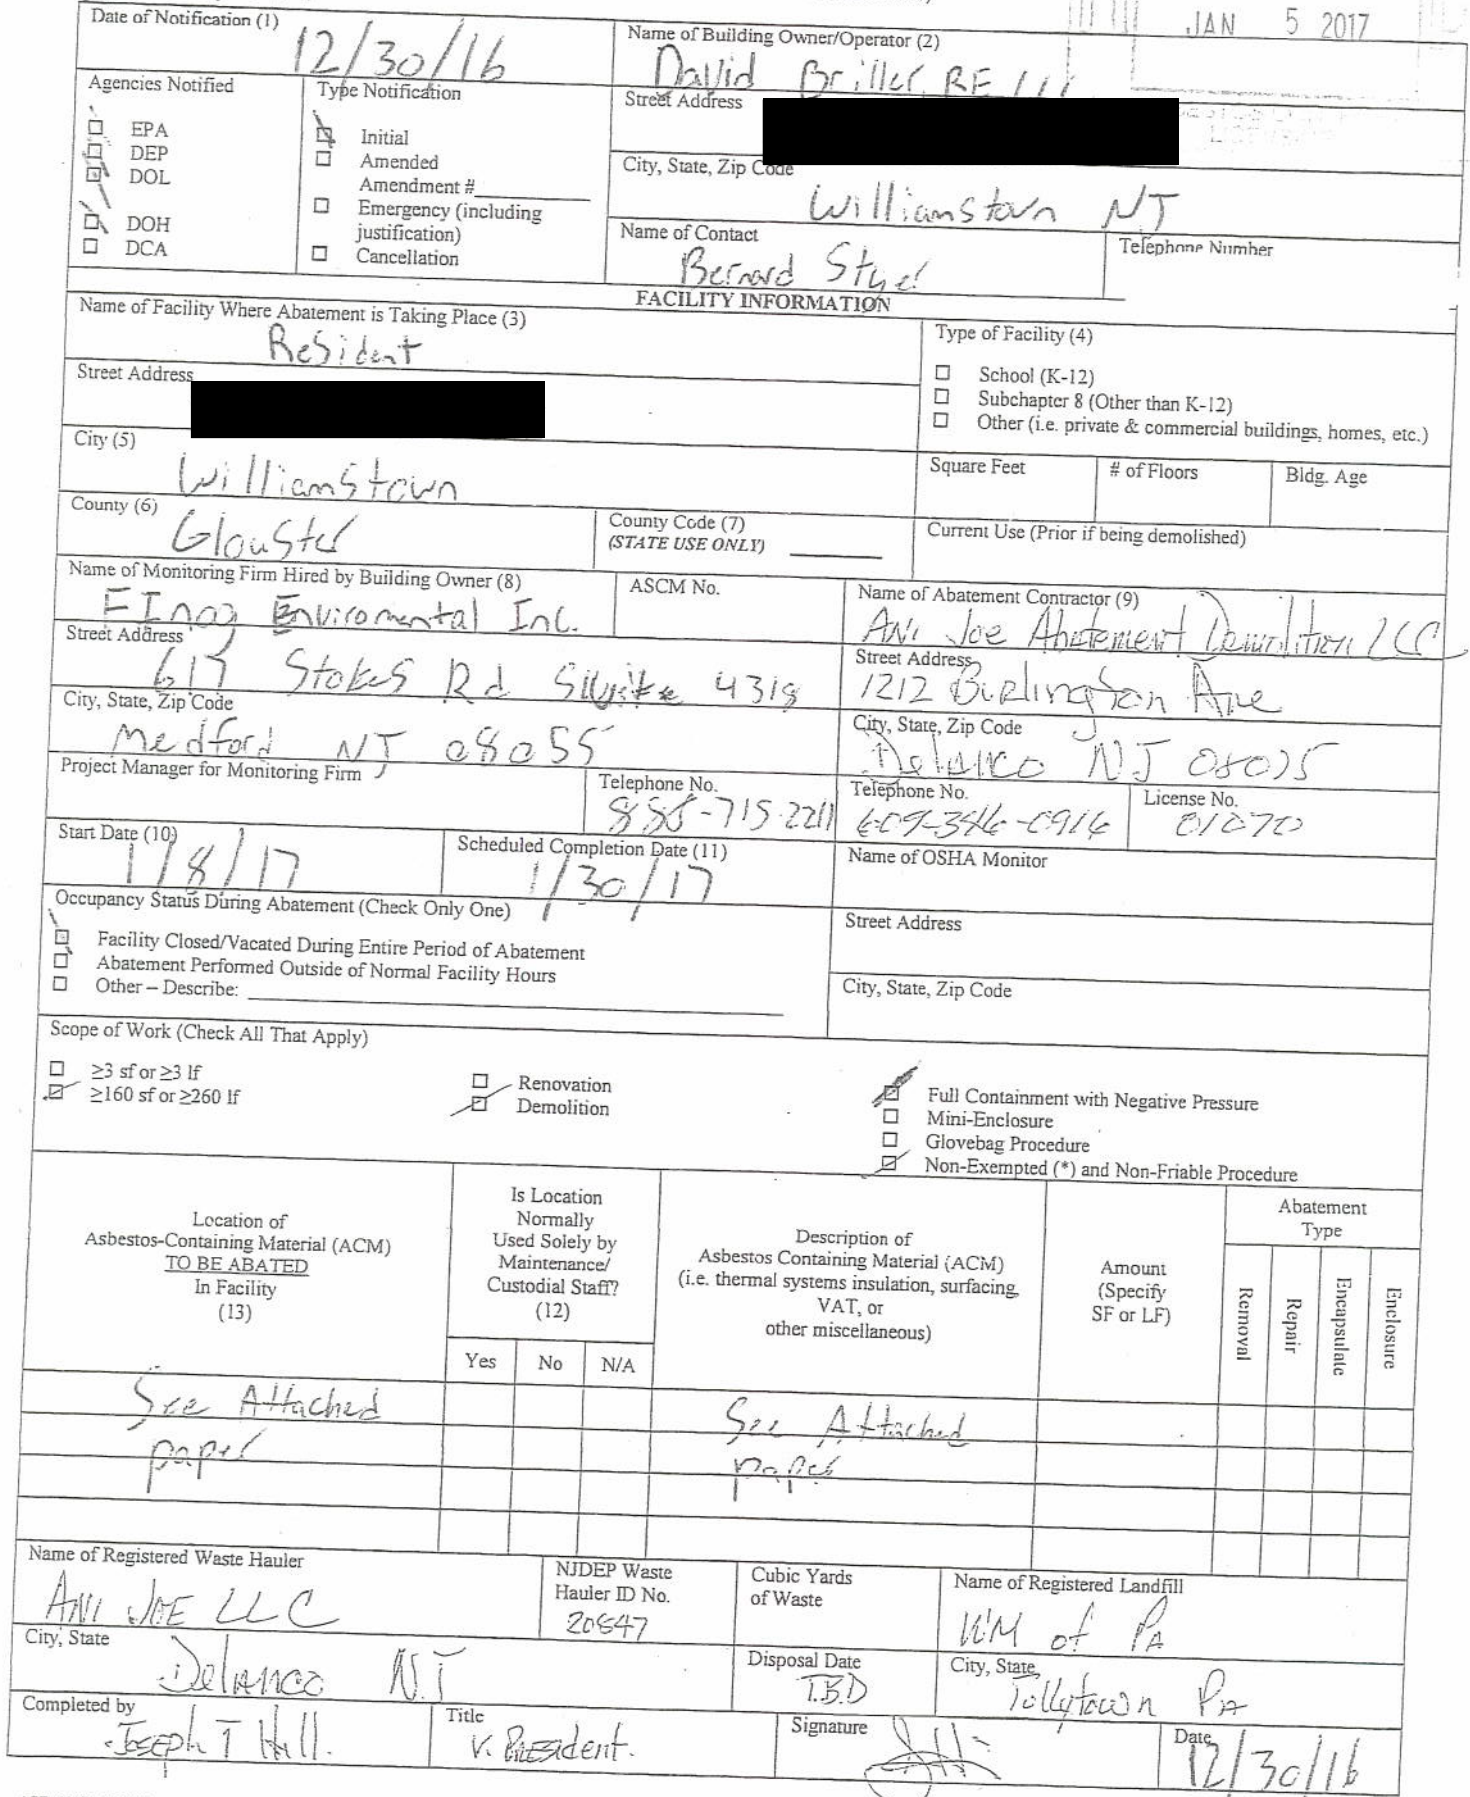 JAN 5 2017
Date of Notification (1)
12/30/16
Name of Building Owner/Operator (2)
David Briller RE LLC
Agencies Notified
EPA
DEP
DOL
DOH
DCA
Type Notification
Initial
Amended
Amendment #
Emergency (including
justification)
Cancellation
Street Address
City, State, Zip Code
Williamstown NJ
Name of Contact
Bernard
Telephone Number
FACILITY INFORMATION
Name of Facility Where Abatement is Taking Place (3)
Resident
Street Address
City (5)
Williamstown
County (6)
Glouster
County Code (7)
(STATE USE ONLY)
Type of Facility (4)
School (K-12)
Subchapter 8 (Other than K-12)
Other (i.e. private & commercial buildings, homes, etc.)
Square Feet
# of Floors
Bldg. Age
Current Use (Prior if being demolished)
Name of Monitoring Firm Hired by Building Owner (8)
Enviromental Inc.
ASCM No.
Street Address
617 Stokes Rd
City, State, Zip Code
Medford NJ 08055
Project Manager for Monitoring Firm
Telephone No.
715-2211
Name of Abatement Contractor (9)
ANI Joe Abatement Demolition LLC
Street Address
1212 Burlington Ave
City, State, Zip Code
Delanco NJ 08075
Telephone No.
609-346-0916
License No.
01070
Start Date (10)
1/8/17
Scheduled Completion Date (11)
1/30/17
Name of OSHA Monitor
Occupancy Status During Abatement (Check Only One)
Facility Closed/Vacated During Entire Period of Abatement
Abatement Performed Outside of Normal Facility Hours
Other – Describe:
Street Address
City, State, Zip Code
Scope of Work (Check All That Apply)
≥3 sf or ≥3 lf
≥160 sf or ≥260 lf
Renovation
Demolition
Full Containment with Negative Pressure
Mini-Enclosure
Glovebag Procedure
Non-Exempted (*) and Non-Friable Procedure
Location of
Asbestos-Containing Material (ACM)
TO BE ABATED
In Facility
(13)
Is Location
Normally
Used Solely by
Maintenance/
Custodial Staff?
(12)
Yes
No
N/A
Description of
Asbestos Containing Material (ACM)
(i.e. thermal systems insulation, surfacing,
VAT, or
other miscellaneous)
Amount
(Specify
SF or LF)
Abatement
Type
Removal
Repair
Encapsulate
Enclosure
See Attached
paper
See Attached
paper
Name of Registered Waste Hauler
ANI JOE LLC
NJDEP Waste
Hauler ID No.
20847
Cubic Yards
of Waste
Name of Registered Landfill
WM of PA
City, State
Delanco NJ
Disposal Date
T.B.D
City, State
Tullytown PA
Completed by
Joseph T Hill.
Title
V. President.
Signature
Date
12/30/16